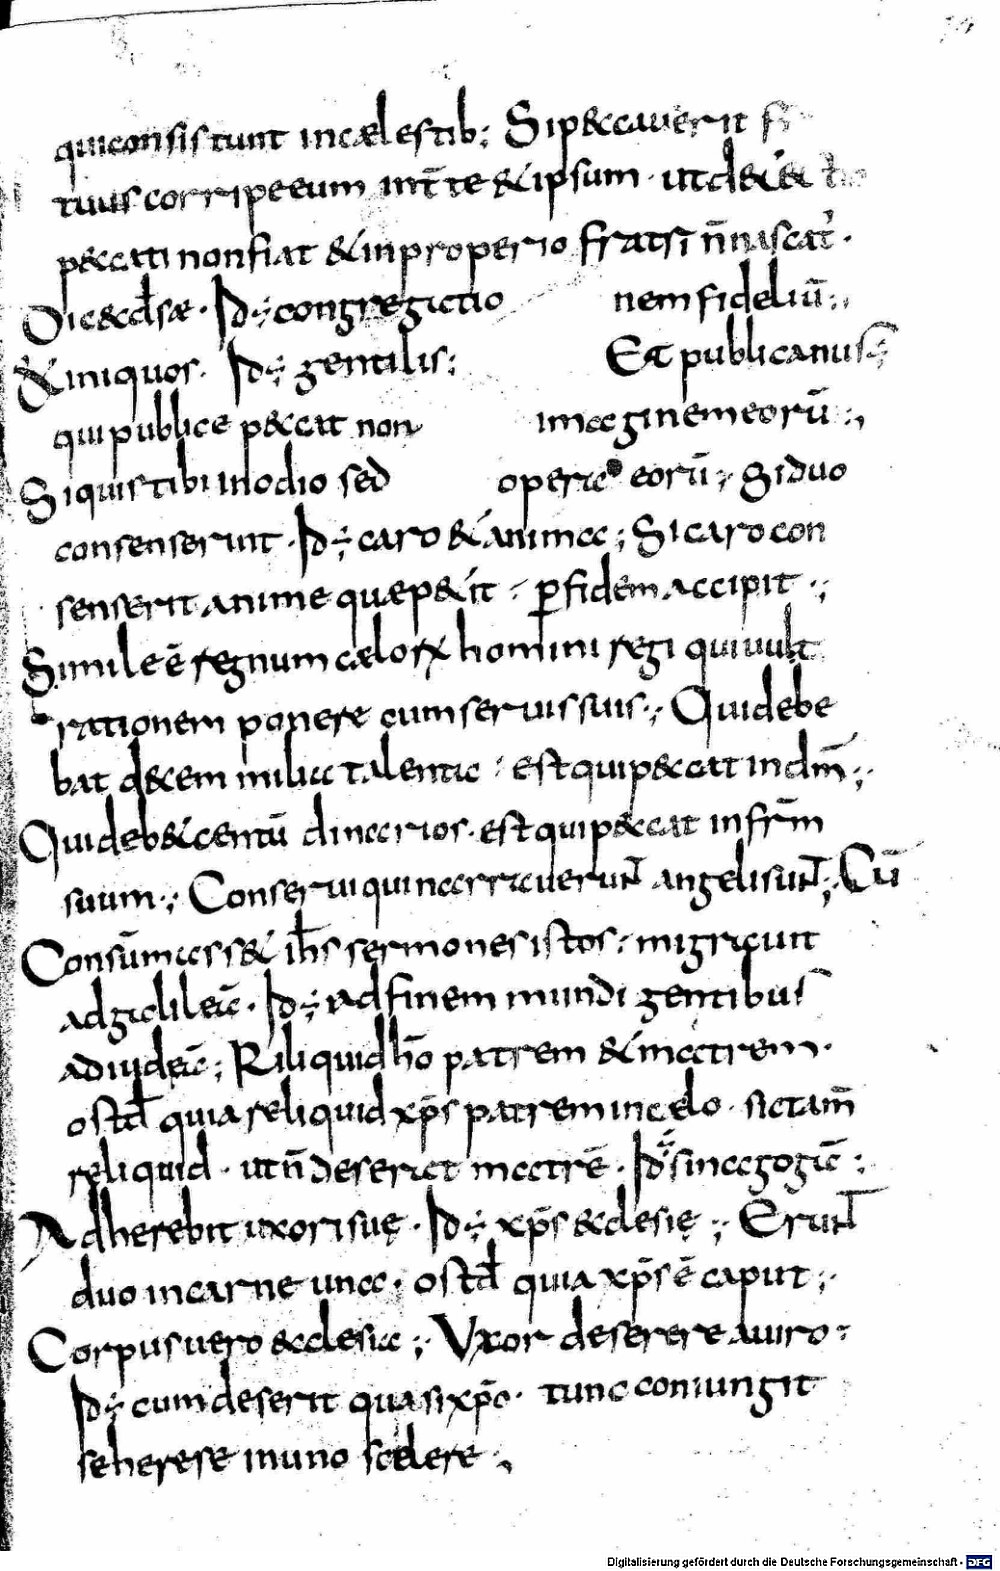 qui consistunt in cælestib; Si p&ccauerit fr
tuus corripe eum int̄ te & ipsum · ut d&
p&cati non fiat & inproperio fratri n̄ nascat᷑ ·
Dic &cl̄sæ · Id; congregatio nem fideliū;,
& iniquos · Id; gentilis; Et publicanus;
qui publice p&cat non imaginem eorū;,
Si quis tibi in odio sed opera eorū; Si duo
consenserint · Id; caro & anima; Si caro con
senserit anime quæ p&it : p̱ fidem accipit ·;
Simile ē regnum cælorꝝ homini regi qui uult
rationem ponere cum seruis suis; Qui debe
bat d&cem milia talenta : est qui p&cat in dm̄;
Qui deb& centū dinarios · est qui p&cat in frm̄
suum; Conserui qui narrauerunt angeli sunt; Cū
Consūmass& ih̄s sermones istos : migrauit
ad galileā · Id; ad finem mundi gentibus
ad iudeā; Riliquid hō patrem & matrem ·
ostd̄ quia reliquid xp̄s patrem in cælo · sic tam̄
reliquid · ut n̄ deserat matrē · Id; sinagogā :
Adherebit uxori suę · Id; xp̄s &clesię; Erunt
duo in carne una · ostd̄ quia xp̄s ē caput;
Corpus uero &clesia; Vxor deserere a uiro :
Id; cum deserit quasi xp̄o · tunc coniungit
se herese in uno scelere ·,
Digitalisierung gefördert durch die Deutsche Forschungsgemeinschaft - DFG